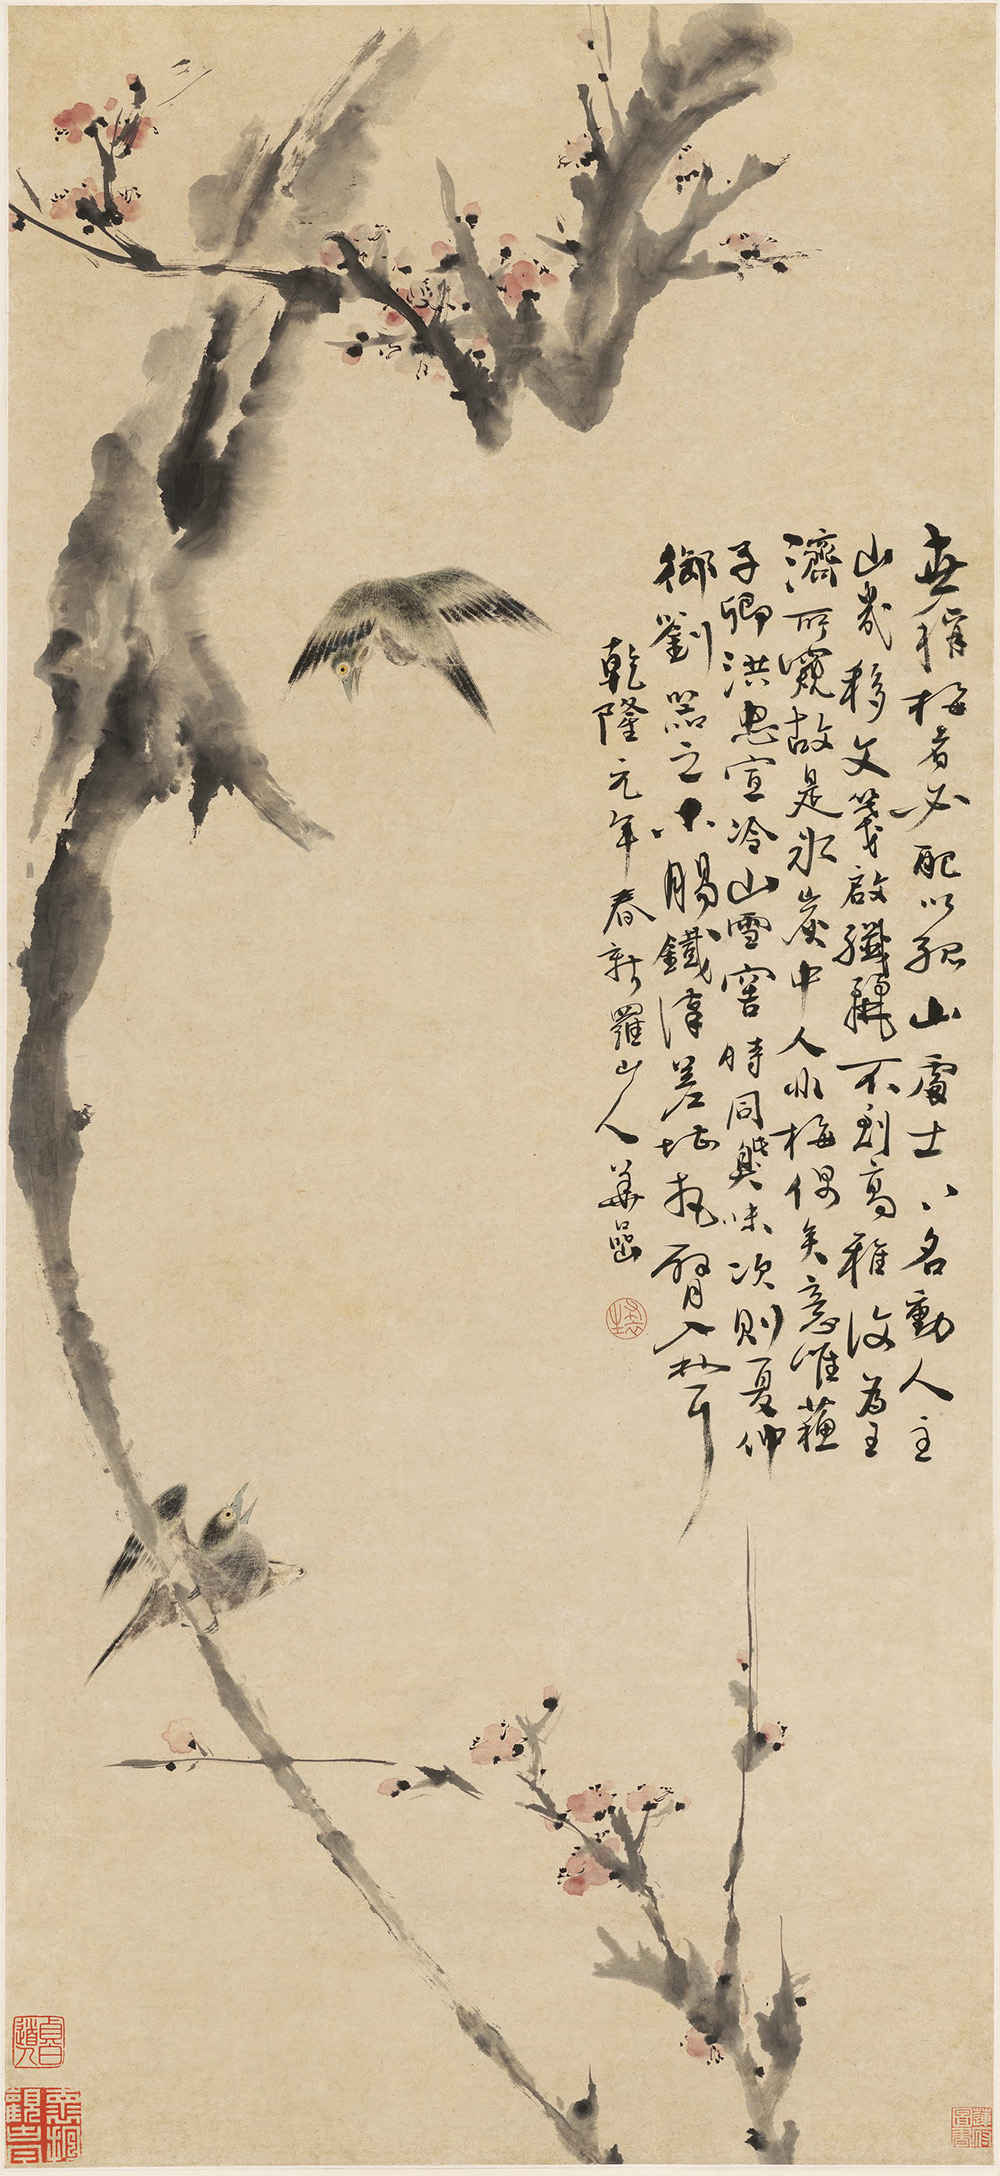 世稱梅者必配以孤山處士以名動人主
山幾移文箋啟纖麗不到高雅汶為王
濟所窺故是冰炭中人非梅偶矣意唯蘓
子卿洪忠宣冷山雪窖時同與味次則夏仲
御劉器之木腸鐵漢差堪執臂入林耳
乾隆元年春新羅山人華喦